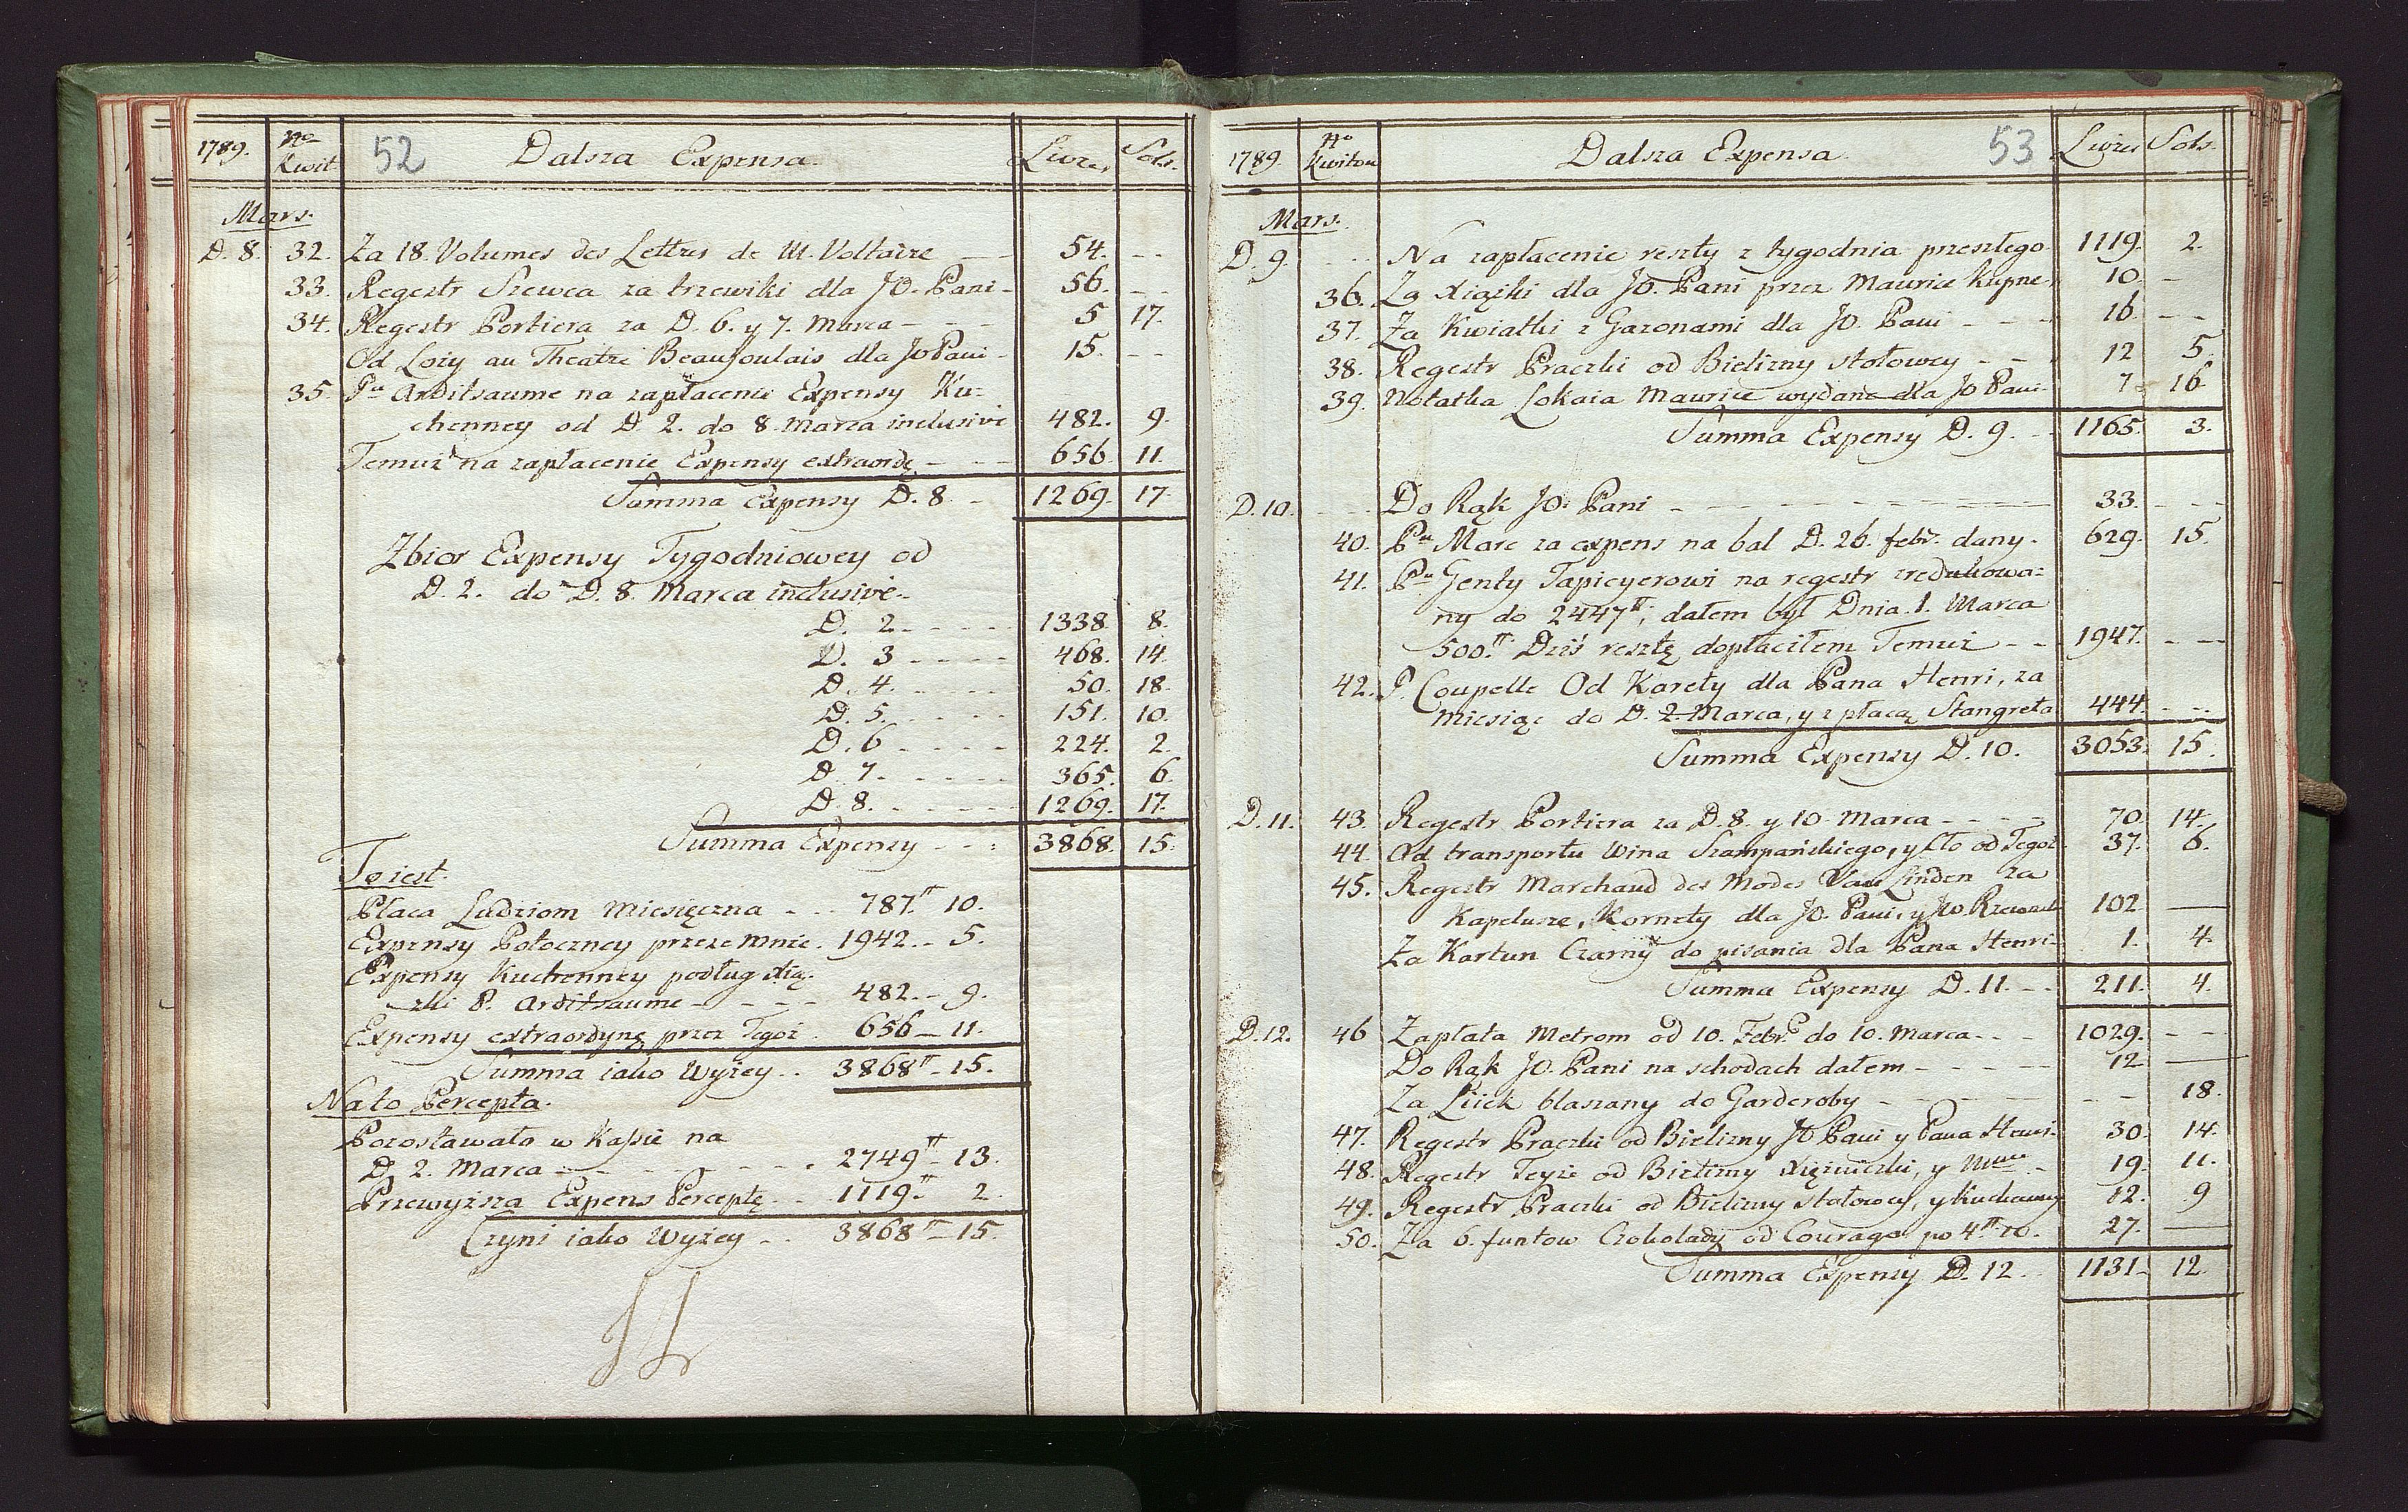 1789. No Kwit 52 Dalsza Expensa. Livres Sols.
Mars.
D. 8. 32. Za 18. Volumes des Lettres de M. Voltaire 54. - -
33. Regestr Szewca za trzewiki dla JO. Pani - 56. - -
34. Regestr Portiera za D. 6. y 7. Marca - - - 5 17.
Od Loży au Theatre Beaujoulais dla Jo Pani - 15. - -
35. Pu Arditsaume na zapłacenie Expensy Ku-
chenney od D. 2. do 8. Marca inclusive 482. 9.
Temuż na zapłacenie Expensy extraordę - - - 656. 11.
Summa Expensy D. 8. - 1269. 17.
Zbior Expensy Tygodniowey od
D. 2. do D. 8. Marca inclusive.
D. 2. - - - - 1338. 8.
D. 3 - - - - 468. 14.
D. 4. - - - - 50. 18.
D. 5. - - - - 151. 10.
D. 6 - - - - 224. 2.
D. 7. - - - - 365. 6.
D. 8. - - - - 1269. 17.
Summa Expensy - - - 3868. 15.
To iest.
Płaca Ludziom Miesięczna - - - 787.tt 10.
Expensy Potoczney przeze mnie. 1942. - 5.
Expensy Kuchenney podług xią-
żki P. Arditsaume - - - - 482. - 9.
Expensy extraordynę przez Tegoż. 656 - 11.
Summa iako Wyżey. . 3868tt - 15.
Na to Percepta.
Pozostawało w Kassie na
D. 2. Marca - - - - - - - 2749tt - 13.
Przewyższa Expens Perceptę. - 1119.tt 2.
Czyni iako Wyżey - - 3868tt - 15.
1789. No Kwitow Dalsza Expensa. 53 Livres Sols.
Mars.
D. 9. - - Na zapłacenie reszty z tygodnia przeszłego 1119. 2.
36. Za xiążki dla JO. Pani przez Maurice kupne. 10. -
37. Za Kwiatki z Gazonami dla JO. Pani - - - 16. - -
38. Regestr Praczki od Bielizny stołowey - - 12 5.
39. Notatka Lokaia Maurice wydane dla Jo Pani - 7 - 16
Summa Expensy D. 9. - - 1165. 3.
D. 10. - - Do Rąk JO. Pani - - - - - 33. - - -
40. Pu Marc za expens na bal D. 26. febr. dany. 629. 15.
41. Pu Genty Tapicyerowi na regestr zredukowa-
ny do 2447tt; dałem był Dnia 1. Marca
500.tt Dziś resztę dopłaciłem Temuż - - 1947. - -
42. P. Coupelle Od Karety dla Pana Henri, za
miesiąc do D. 2. Marca, y z płacą Stangreta 444. - -
Summa Expensy D. 10. 3053. 15.
D. 11. 43. Regestr Portiera za D. 8. y 10. Marca - - - - 70. 14.
44. Od transportu Wina Szampańskiego, y Cło od Tegoż. 37. 6.
45. Regestr Marchand des Modes Van Linden za
Kapelusze, Kornety dla JO. Pani, y JW. Rzewusk 102 —
Za Kartun Czarny do pisania dla Pana Henri - 1. 4.
Summa Expensy D. 11. - - 211. 4.
D. 12. 46 Zapłata Metrom od 10. Febr. do 10. Marca. - - 1029. - -
Do Rąk JO. Pani na schodach dałem - - - - - 12 —
Za Liick blaszany do Garderoby - - - - - - - 18.
47. Regestr Praczki od Bielizny JO Pani y Pana Henri. 30. 14.
48. Regestr Teyże od Bielizny xiężniczki, y - 19. 11.
49. Regestr Praczki od Bielizny stołowey, y kuchenney 12. 9
50. Za 6. funtow Czokolady od Courage po 4.tt 10. 27. —
Summa Expensy D. 12. - 1131. 12.